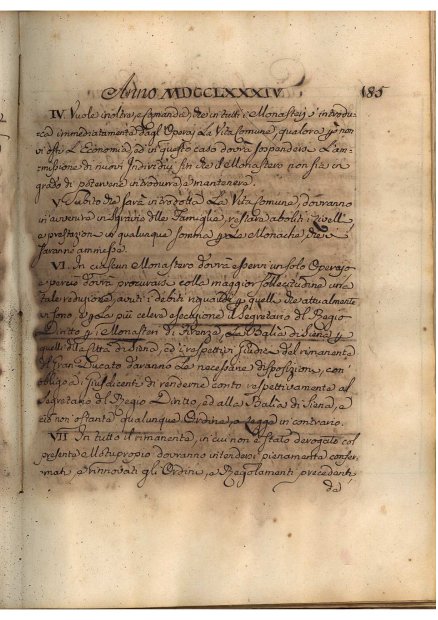 Anno MDCCLXXXIV. 185
IV. Vuole inoltre, e comanda, che in tutti i Monasterj s'introdu-
ca immediatamente dagl'Operaj La Vita Comune, qualora non
vi osti L'Economia, ed in questo caso dovrà sospendersi L'am-
missione di nuovi Individui fin che il Monastero non sia in
grado di potervene introdurre, e mantenere.
V. Subito che sarà introdotta La Vita Comune, dovranno
in avvenire in sgravio delle Famiglie, restare aboliti i Livelli
e prestazioni in qualunque somma le Monache che vi
saranno ammesse.
VI. In ciascun Monastero dovrà esservi un solo Operajo
e perciò dovrà procurarsi colla maggior sollecitudine una
tale reduzione, avuti i debiti riguardi quelli che attualmente
vi sono e La più celere esecuzione il Segretario del Regio
Diritto i Monasteri di Firenze, La Balìa di Siena
quelli della Città di Siena, ed i respettivi Giudici del rimanente
del Gran-Ducato daranno Le necessarie disposizioni, con
obbligo a' Giusdicenti di renderne conto respettivamente al
Segretario del Regio Diritto, ed alla Balìa di Siena, e
ciò non ostante qualunque Ordine, o Legge in contrario.
VII In tutto il rimanente, in cui non è stato derogato col
presente Motuproprio dovranno intendersi pienamente confer-
mati, e rinnovati gli Ordini, e Regolamenti precedenti
da